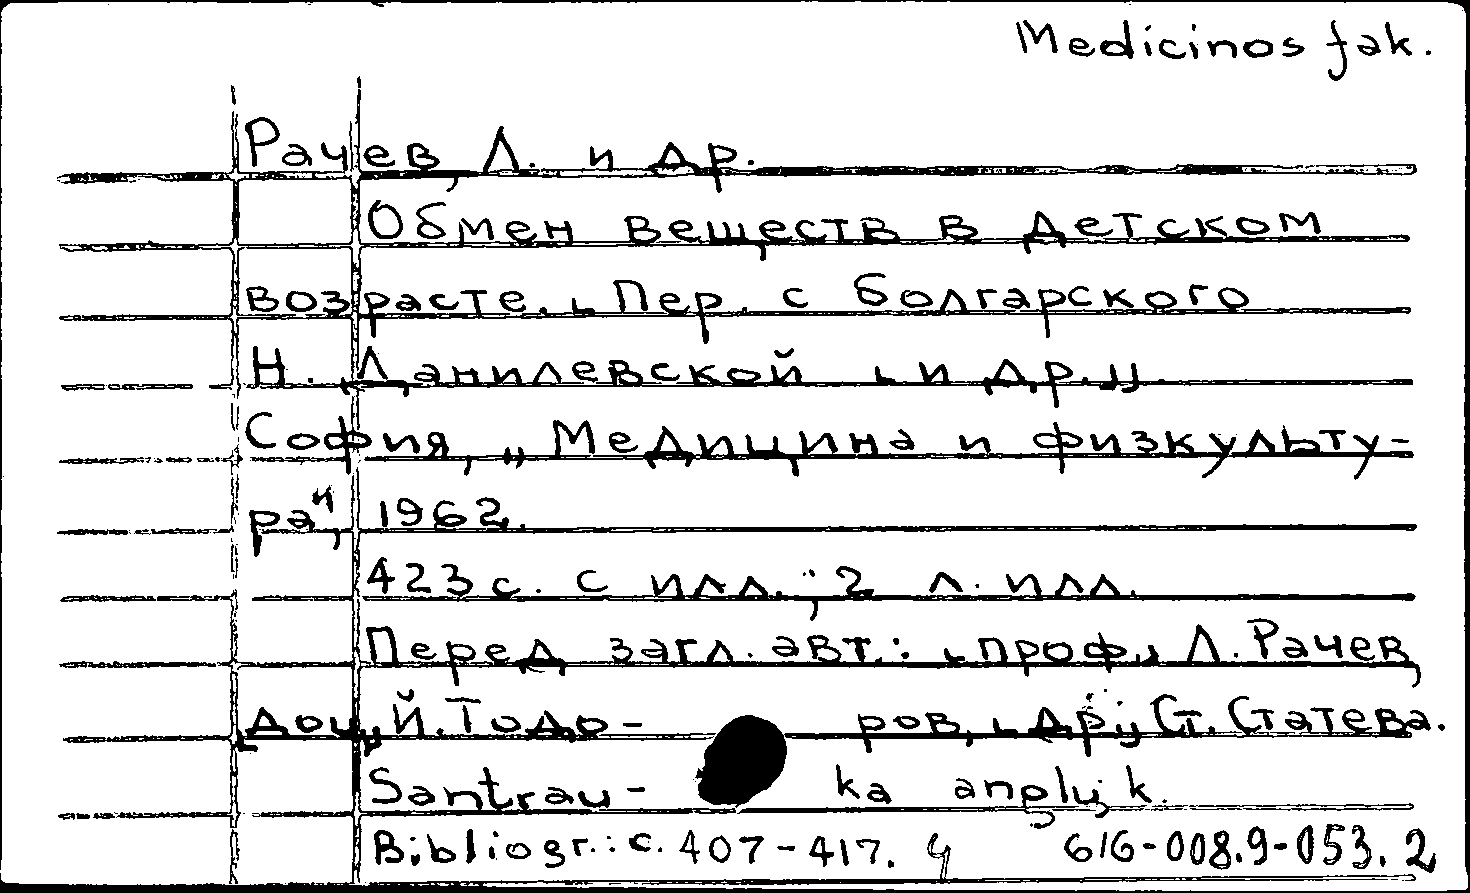 Medicinos fak.
Рачев, Л. и др.
Обмен веществ в детском
возрасте. [Пер. с болгарского
Н. Данилевской [и др.]]
София, „Медицина и физкульту=
ра", 1962.
423 с. с илл.; 2 л. илл.
Перед загл. авт.: [проф.] Л. Рачев,
[доц.] Й. Тодо- ров, [др] Ст. Статева.
Santrau- ka anglų k.
Bibliogr.: с. 407-417. 616-008.9-053.2